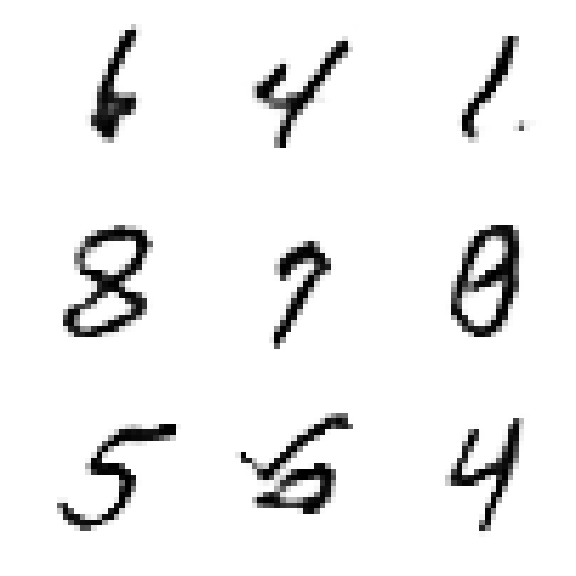 6 4 1
8 7
5 5 4